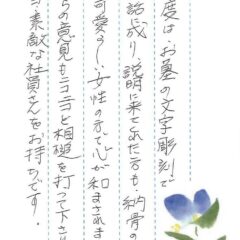 度は、お墓の文字彫刻で
話に成り、説明に来てくれた方も、納骨の
可愛らしい女性の方で心が和まされま
らの意見もニコニコと相槌を打って下さ
も素敵な社員さんをお持ちです。